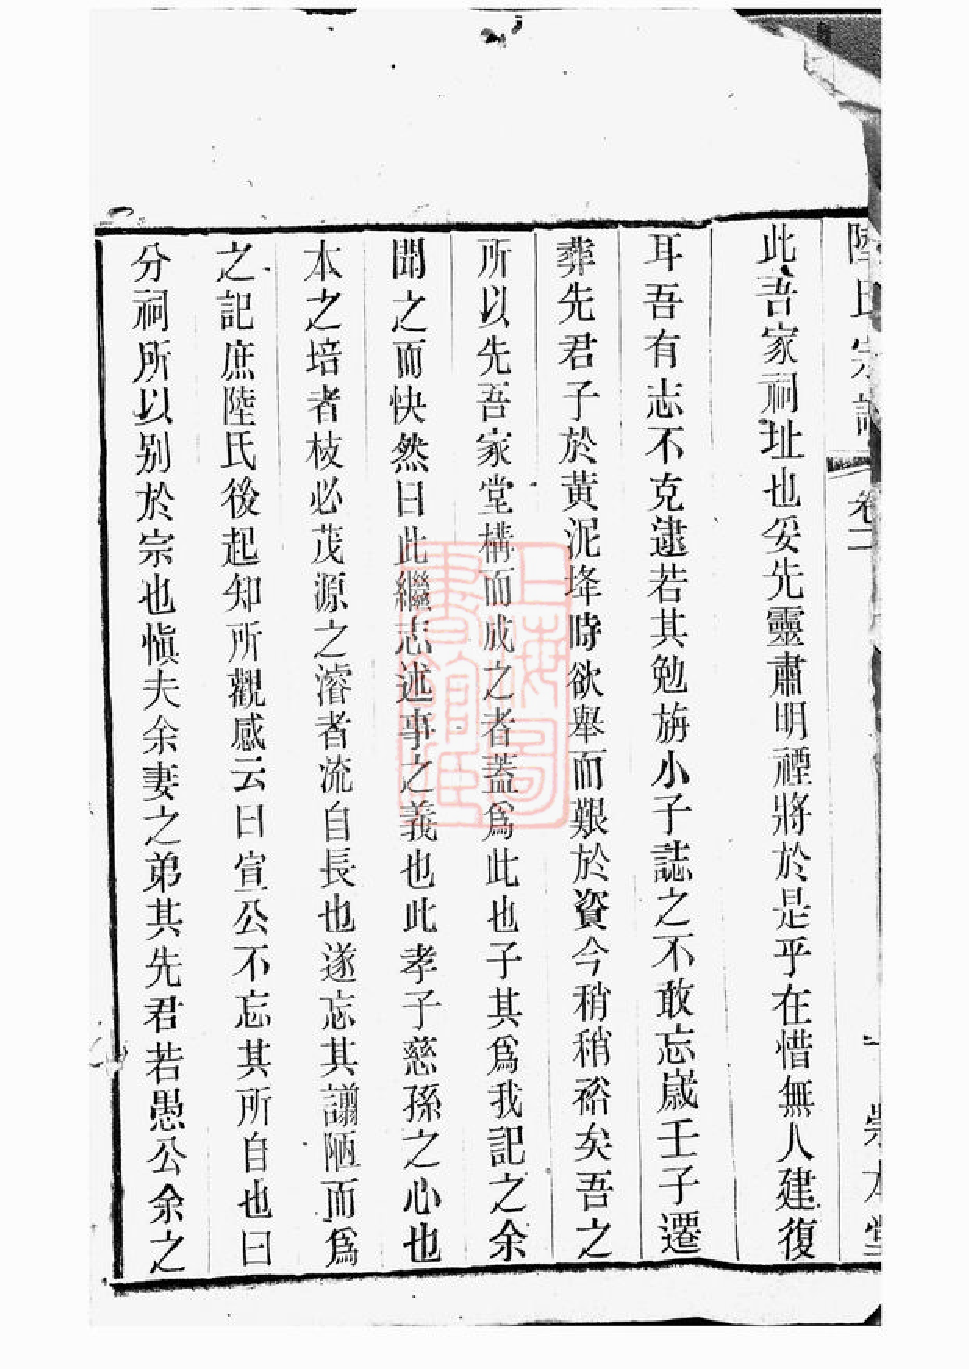 陸氏宗譜 卷二 一 崇本堂
此吾家祠址也妥先靈肅明禋將於是乎在惜無人建復
耳吾有志不克逮若其勉旃小子誌之不敢忘歲壬子遷
葬先君子於黃泥垟時欲舉而艱於資今稍稍裕矣吾之
所以先吾家堂構而成之者蓋爲此也子其爲我記之余
聞之而快然曰此繼志述事之義也此孝子慈孫之心也
本之培者枝必茂源之濬者流自長也遂忘其譾陋而爲
之記庶陸氏後起知所觀感云曰宣公不忘其所自也曰
分祠所以別於宗也愼夫余妻之弟其先君若愚公余之
上海圖書館藏